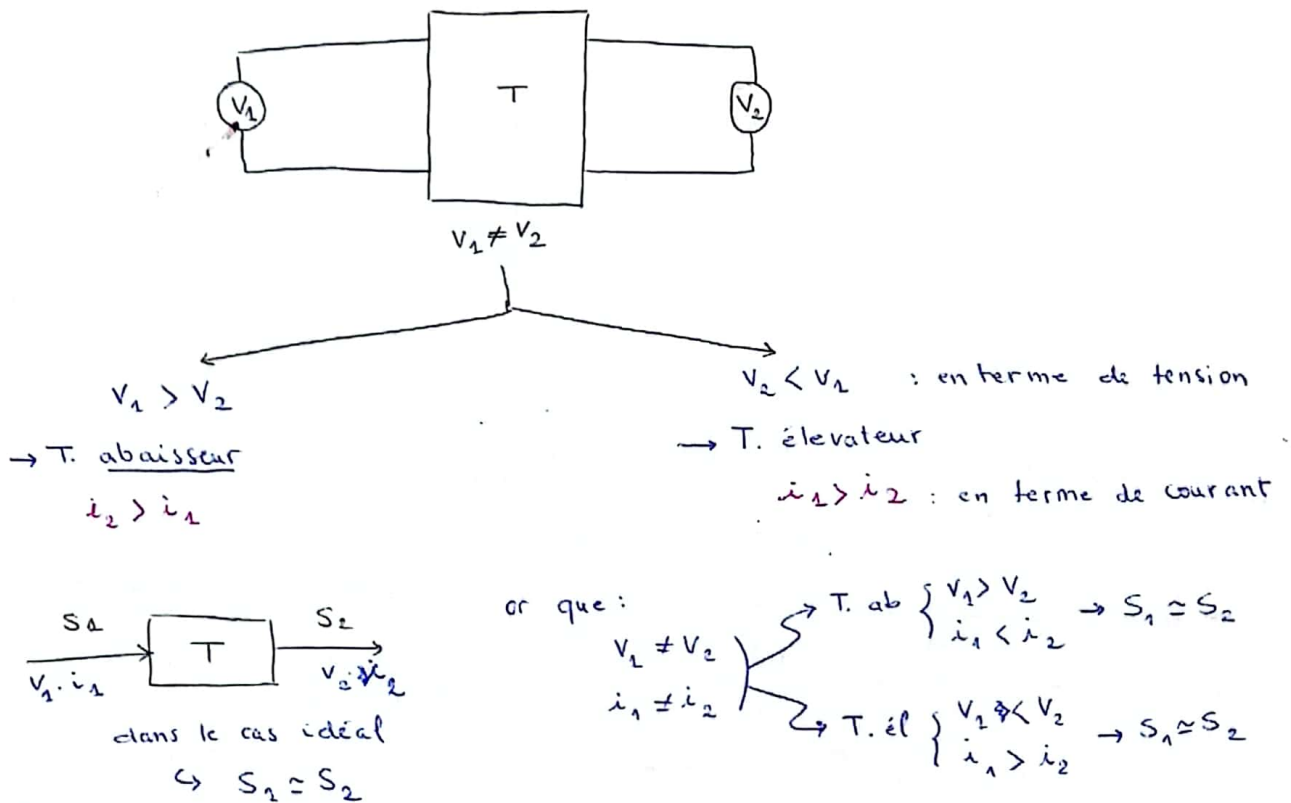 V₁
T
V₂
V₁ ≠ V₂
V₁ > V₂
→ T. abaisseur
i₂ > i₁
V₂ < V₁ : en terme de tension
→ T. élevateur
i₁ > i₂ : en terme de courant
S₁
T
S₂
V₁ . i₁
V₂ . i₂
dans le cas idéal
↳ S₁ ≃ S₂
or que :
V₁ ≠ V₂
i₁ ≠ i₂
T. ab { V₁ > V₂
i₁ < i₂ → S₁ ≃ S₂
T. él { V₁ < V₂
i₁ > i₂ → S₁ ≃ S₂